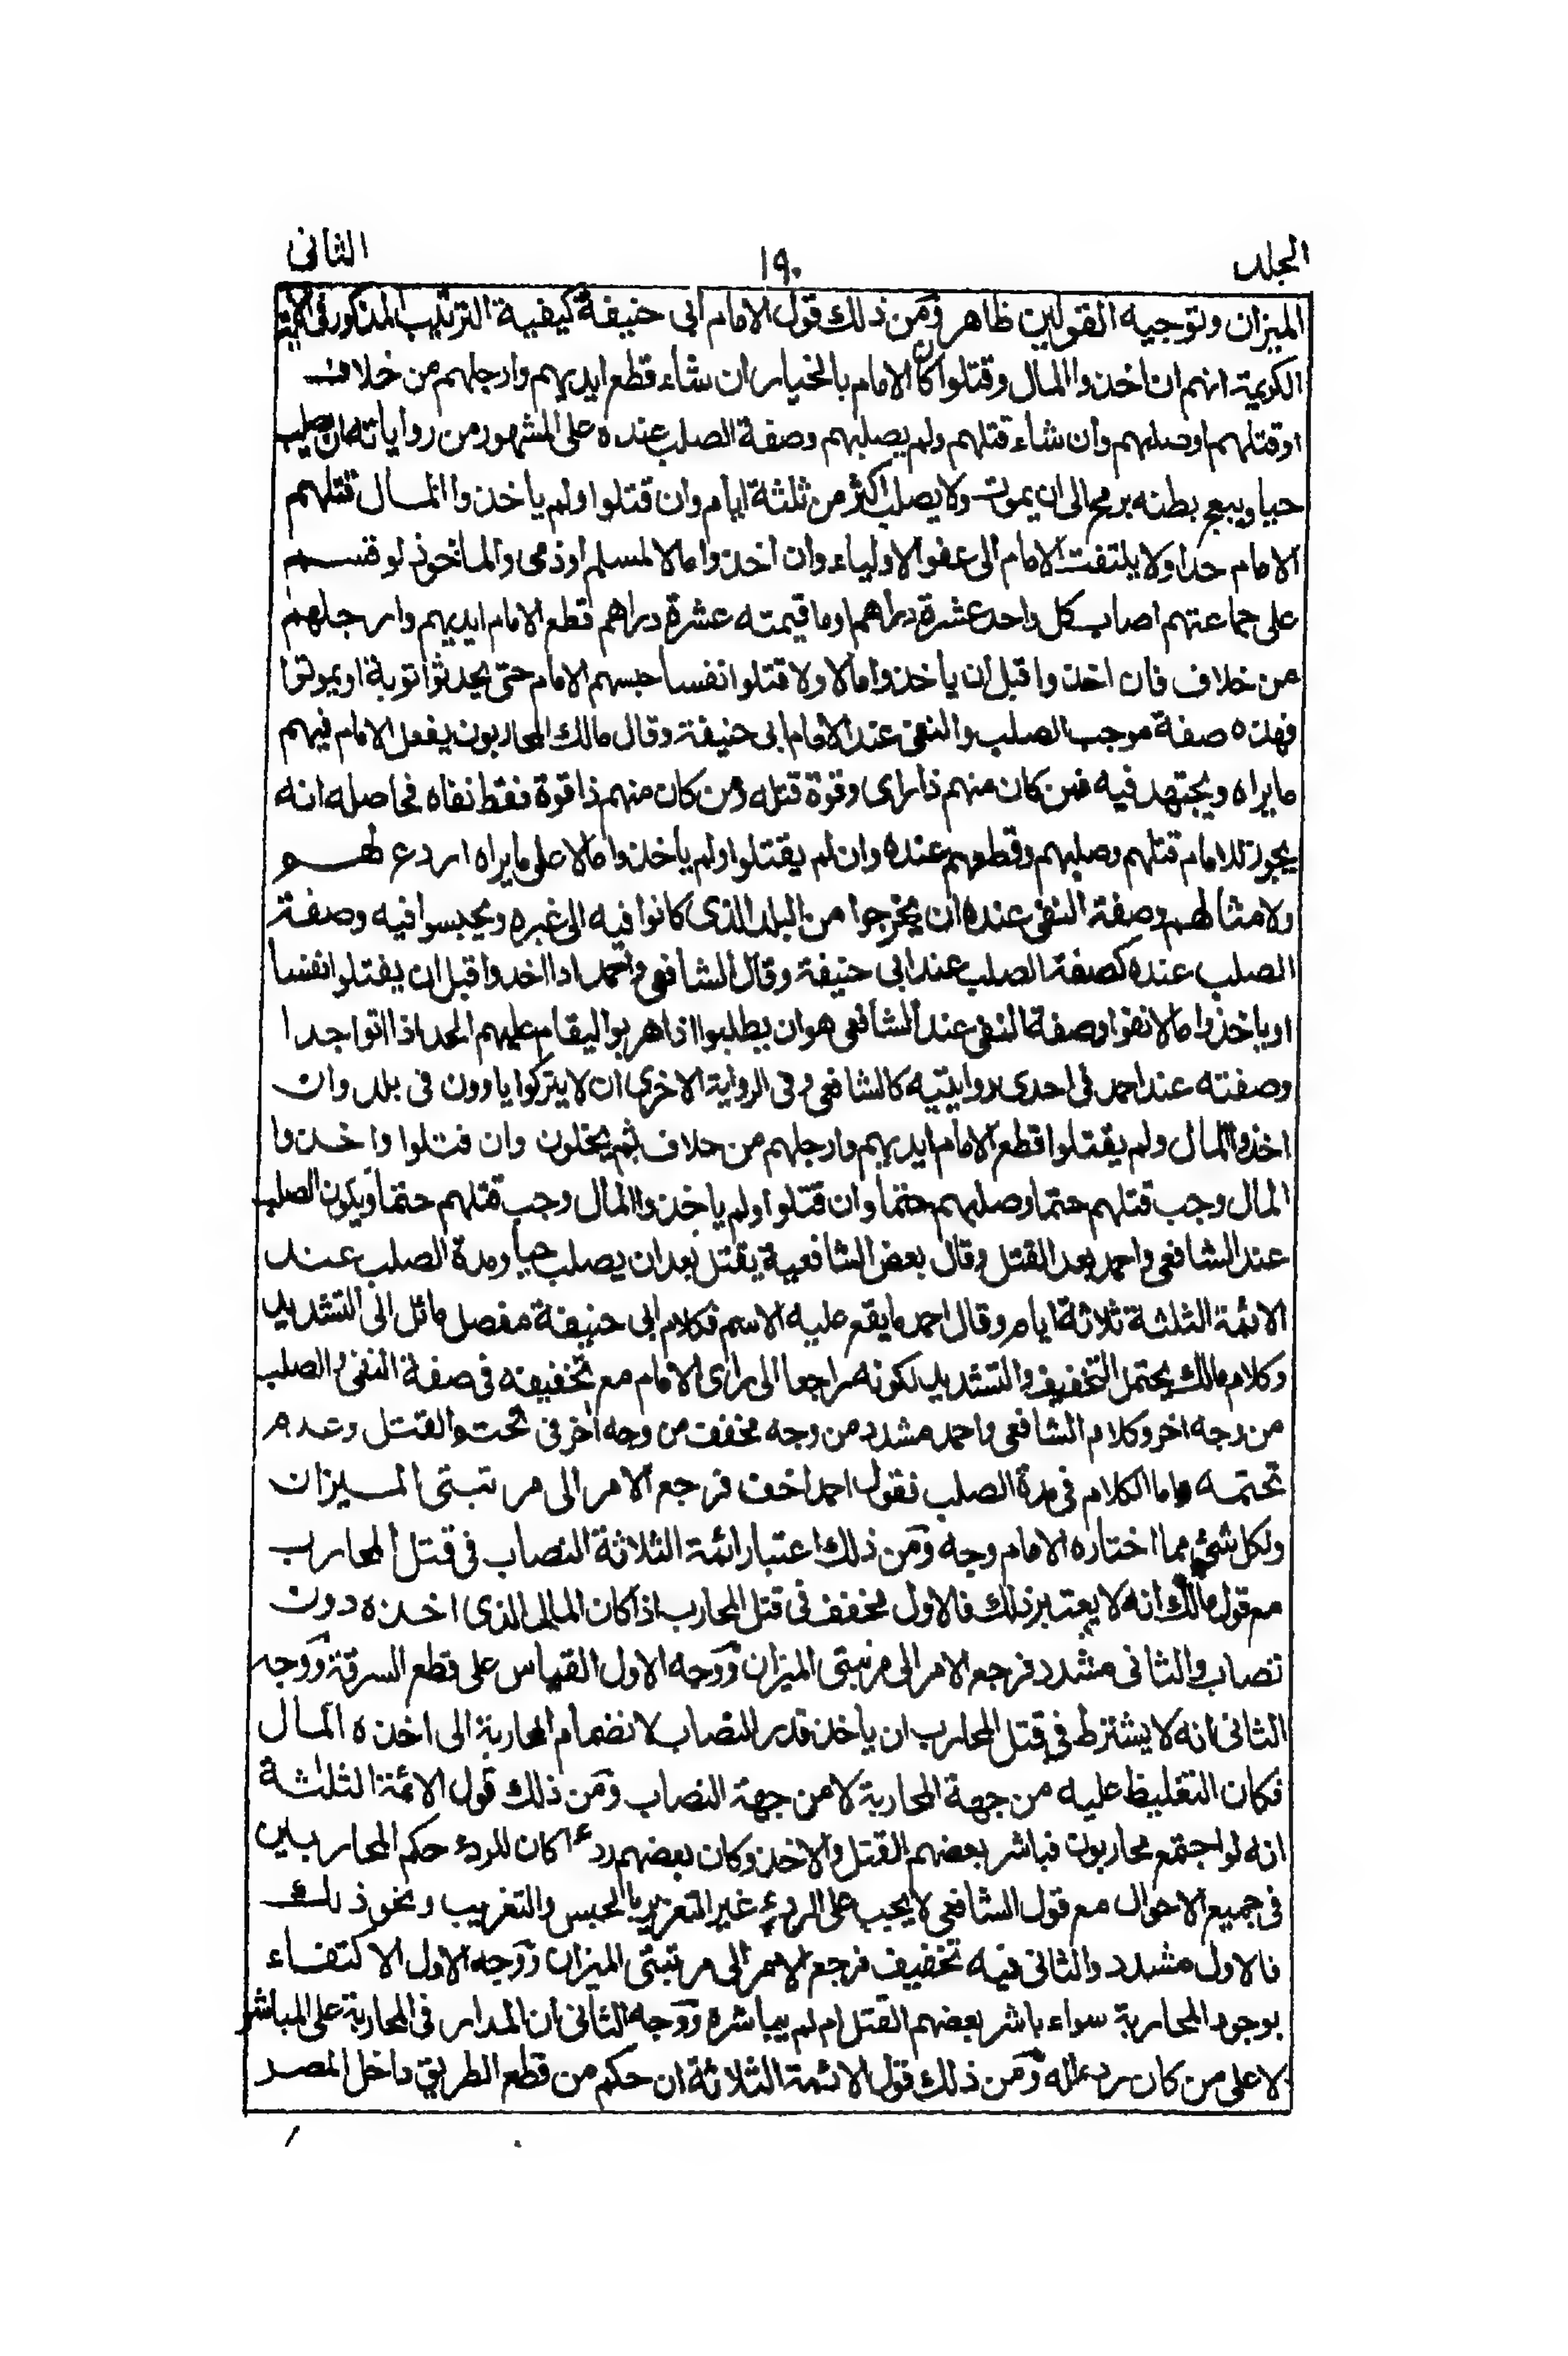 الجلد ١٩٠ الثانى
الميزان وتوجيه القولين ظاهر ومن ذلك قول الامام ابى حنيفة كيفية الترتيب المذكور فى الآية
الكريمة انهم ان اخذوا المال وقتلوا كان الامام بالخيار ان شاء قطع ايديهم وارجلهم من خلاف
او قتلهم او صلبهم وان شاء قتلهم ولم يصلبهم وصفة الصلب عنده على المشهور من رواياته ان يصلب
حيا ويبعج بطنه برمح الى ان يموت ولا يصلب اكثر من ثلثة ايام وان قتلوا ولم ياخذوا المال قتلهم
الامام حدا ولا يلتفت الامام الى عفو الاولياء وان اخذوا مالا لمسلم او ذمى والماخوذ لو قسم
على جماعتهم اصاب كل واحد عشرة دراهم او ما قيمته عشرة دراهم قطع الامام ايديهم وارجلهم
من خلاف فان اخذوا قبل ان ياخذوا مالا ولا قتلوا نفسا حبسهم الامام حتى يحدثوا توبة او يموتوا
فهذه صفة موجب الصلب والنفى عند الامام ابى حنيفة وقال مالك المحاربون يفعل الامام فيهم
ما يراه ويجتهد فيه فمن كان منهم ذا راى وقوة قتله ومن كان منهم ذا قوة فقط نفاه فحاصله انه
يجوز للامام قتلهم وصلبهم وقطعهم عنده وان لم يقتلوا ولم ياخذوا مالا على ما يراه اردع لهم
ولامثالهم وصفة النفى عنده ان يخرجوا من البلد الذى كانوا فيه الى غيره ويحبسوا فيه وصفة
الصلب عنده كصفة الصلب عند ابى حنيفة وقال الشافعى واحمد اذا اخذوا قبل ان يقتلوا نفسا
او ياخذوا مالا نفوا وصفة النفى عند الشافعى هو ان يطلبوا اذا هربوا ليقام عليهم الحد اذا اتوا جدا
وصفته عند احمد فى احدى روايتيه كالشافعى وفى الرواية الاخرى ان لا يتركوا ياوون فى بلد وان
اخذوا المال ولم يقتلوا قطع الامام ايديهم وارجلهم من خلاف ثم يخلون وان قتلوا واخذوا
المال وجب قتلهم حتما وصلبهم حتما وان قتلوا ولم ياخذوا المال وجب قتلهم حتما ويكون الصلب
عند الشافعى واحمد بعد القتل وقال بعض الشافعية يقتل بعد ان يصلب حيا ومدة الصلب عند
الائمة الثلثة ثلاثة ايام وقال احمد ما يقع عليه الاسم فكلام ابى حنيفة مفصل مائل الى التشديد
وكلام مالك يحتمل التخفيف والتشديد لكونه راجعا الى راى الامام مع تخفيفه فى صفة النفى والصلب
من وجه اخر وكلام الشافعى واحمد مشدد من وجه مخفف من وجه اخر فى تحتم القتل وعدم
تحتمه واما الكلام فى مدة الصلب فقول احمد اخف فرجع الامر الى مرتبتى الميزان
ولكل شئ مما اختاره الامام وجه ومن ذلك اعتبار ائمة الثلاثة النصاب فى قتل المحارب
مع قول مالك انه لا يعتبر ذلك فالاول مخفف فى قتل المحارب اذا كان المال الذى اخذه دون
نصاب والثانى مشدد فرجع الامر الى مرتبتى الميزان ووجه الاول القياس على قطع السرقة ووجه
الثانى انه لا يشترط فى قتل المحارب ان ياخذ قدر النصاب لانضمام المحاربة الى اخذه المال
فكان التغليظ عليه من جهة المحاربة لا من جهة النصاب ومن ذلك قول الائمة الثلثة
انه لو اجتمع محاربون فباشر بعضهم القتل والاخذ وكان بعضهم ردءا كان للردء حكم المحاربين
فى جميع الاحوال مع قول الشافعى لا يجب على الردء غير التعزير بالحبس والتغريب ونحو ذلك
فالاول مشدد والثانى فيه تخفيف فرجع الامر الى مرتبتى الميزان ووجه الاول الاكتفاء
بوجود المحاربة سواء باشر بعضهم القتل ام لم يباشره ووجه الثانى ان المدار فى المحاربة على المباشر
لا على من كان ردءا له ومن ذلك قول الائمة الثلاثة ان حكم من قطع الطريق داخل المصر